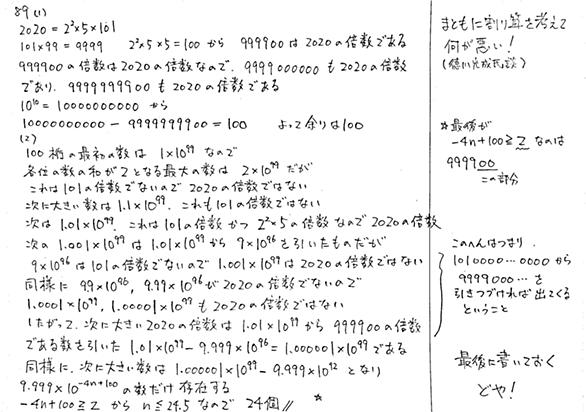 89 (1)
2020 = 2²×5×101
101×99 = 9999　2²×5×5=100 から 999900は2020の倍数である
999900の倍数は2020の倍数なので、9999000000も2020の倍数
であり、9999999900も2020の倍数である
10¹⁰ = 10000000000 から
10000000000 − 9999999900 = 100　よって余りは100
(2)
100桁の最初の数は 1×10⁹⁹ なので
各位の数の和が2となる最大の数は 2×10⁹⁹ だが
これは101の倍数でないので2020の倍数ではない
次に大きい数は1.1×10⁹⁹. これも101の倍数ではない
次は1.01×10⁹⁹. これは101の倍数かつ 2²×5の倍数なので2020の倍数
次の1.001×10⁹⁹は1.01×10⁹⁹から 9×10⁹⁶を引いたものだが
9×10⁹⁶は101の倍数でないので1.001×10⁹⁹は2020の倍数ではない
同様に 99×10⁹⁶, 9.99×10⁹⁶が2020の倍数でないので
1.0001×10⁹⁹, 1.00001×10⁹⁹も2020の倍数ではない
したがって、次に大きい2020の倍数は1.01×10⁹⁹から 999900の倍数
である数を引いた 1.01×10⁹⁹ − 9.999×10⁹⁶ = 1.000001×10⁹⁹である
同様に、次に大きい数は1.000001×10⁹⁹ − 9.999×10⁹² となり
9.999×10⁻⁴ⁿ⁺¹⁰⁰ の数だけ存在する
−4n+100≧2 から n≦24.5 なので 24個 〃　☆
まともに割り算を考えて
何が悪い!
☆最後が
−4n+100≧2 なのは
999900
この部分
このへんはつまり、
1010000…0000 から
9999000… を
引きつづければ出てくる
ということ
最後に書いておく
どや!